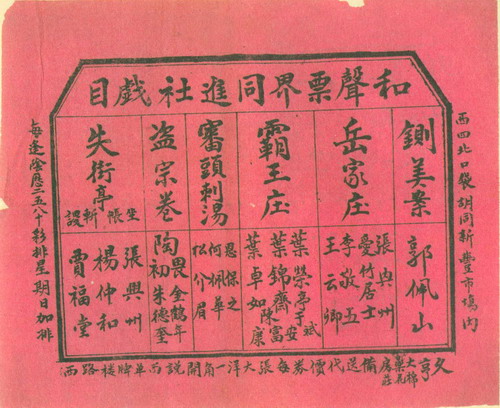 和聲票界同進社戲目
鍘美案
郭佩山
岳家庄
張興州
憂竹居士
李敬五
王云卿
霸王庄
葉榮亭于斌
葉錦齋安
葉卓如陳富康
審頭刺湯
忍保之
何佩華
松介眉
盜宗卷
陶畏初
金鶴年
朱德奎
失街亭
坐帳斬設
張興州
楊仲和
賈福堂
西四北口袋胡同新豐市塲內
每逢陰厯三五八十彩排星期日加排
久亨大藥房棉花莊備送代價券每張大洋一角開設西單牌樓路西